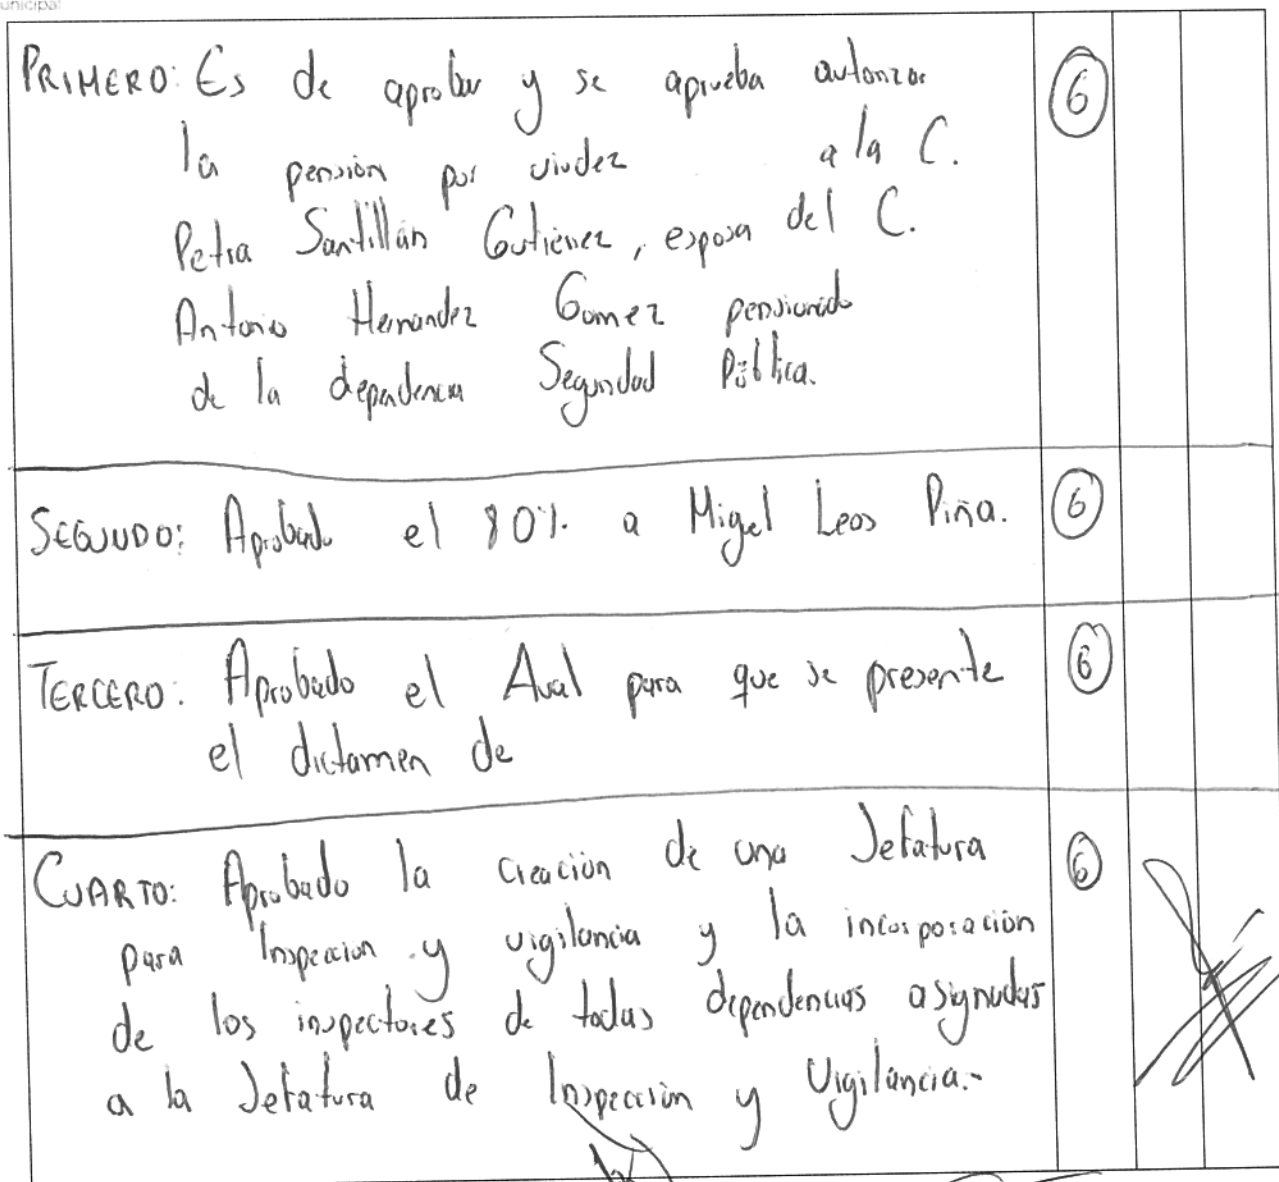 unicipal
PRIMERO: Es de aprobar y se aprueba autorizar
la pensión por viudez a la C.
Petra Santillán Gutiérrez, esposa del C.
Antonio Hernandez Gomez pensionado
de la dependencia Seguridad Pública.
6
SEGUNDO: Aprobado el 80% a Migel Leos Piña.
6
TERCERO: Aprobado el Aval para que se presente
el dictamen de
6
CUARTO: Aprobado la creación de una Jefatura
para Inspeccion y vigilancia y la incorporación
de los inspectores de todas dependencias asignadas
a la Jefatura de Inspección y Vigilancia.-
6